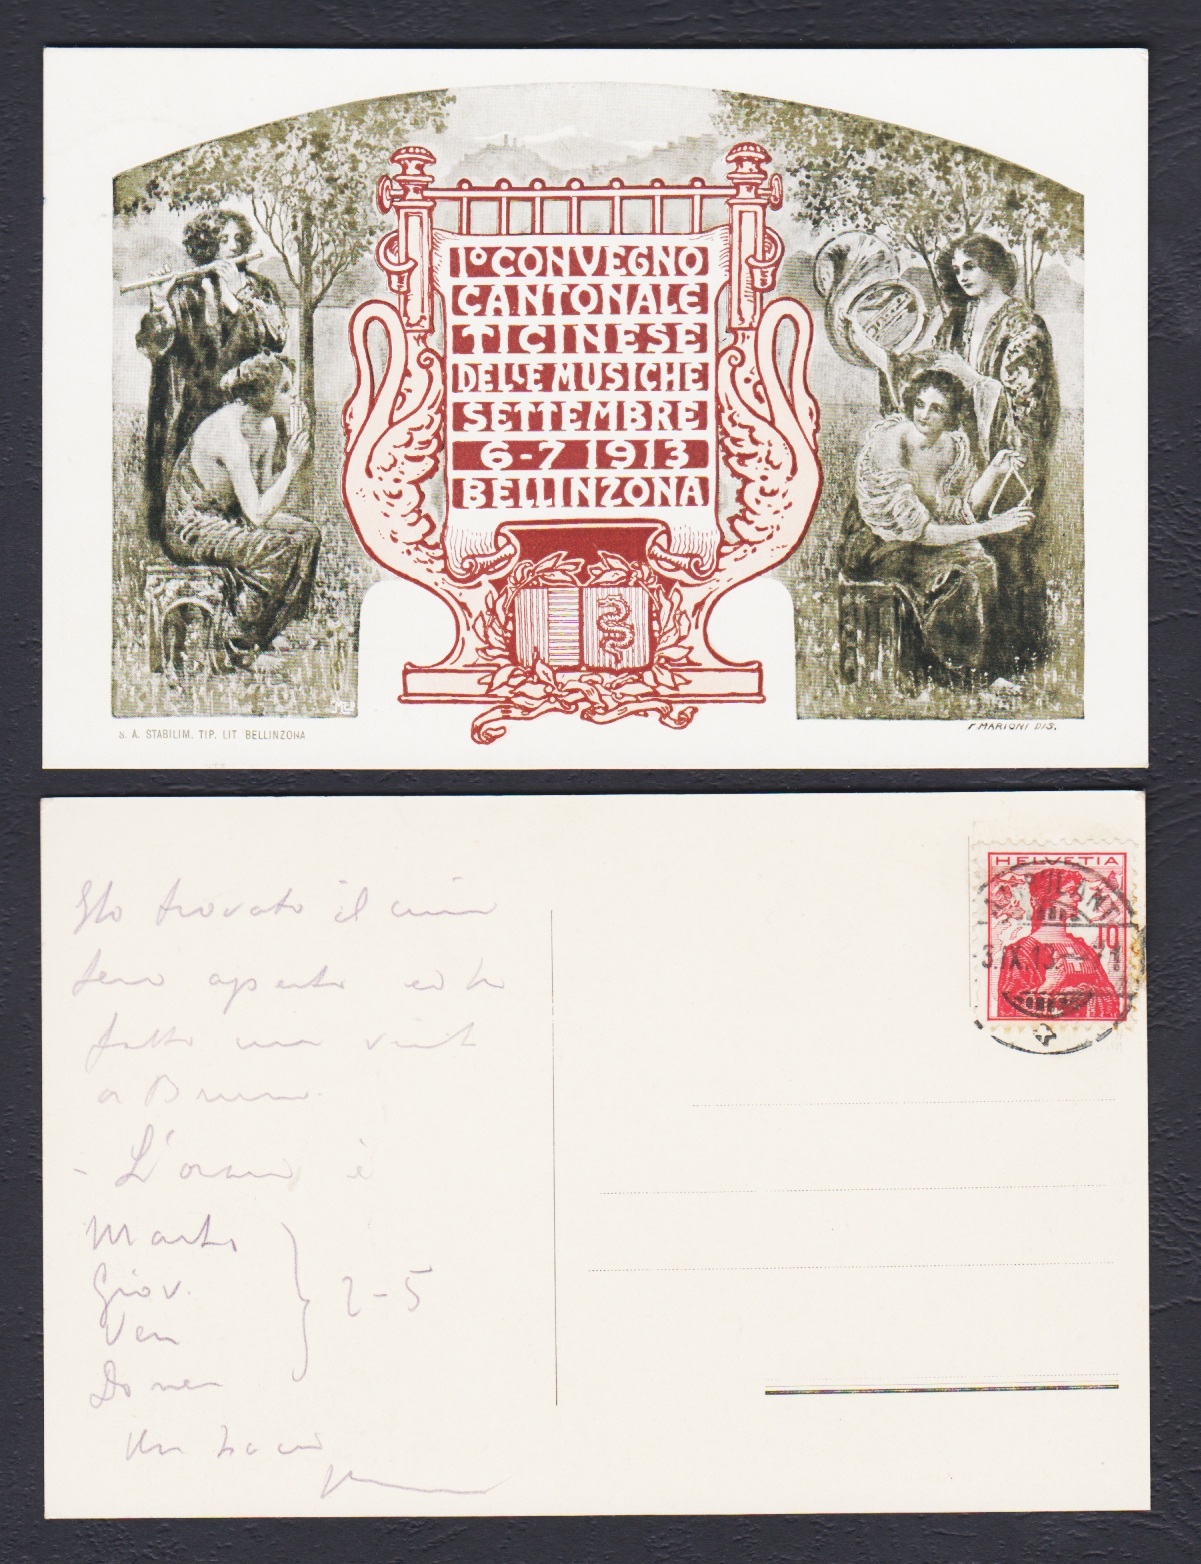 1º CONVEGNO
CANTONALE
TICINESE
DELLE MUSICHE
SETTEMBRE
6-7 1913
BELLINZONA
S. A. STABILIM. TIP. LIT BELLINZONA
F. MARIONI DIS.
HELVETIA
10
3.IX.13
Ho trovato il cimi
tero aperto ed ho
fatto una visita
a Bruno.
- L'orario è
Marte
Giov. 2-5
Ven
Domen
Un bacio